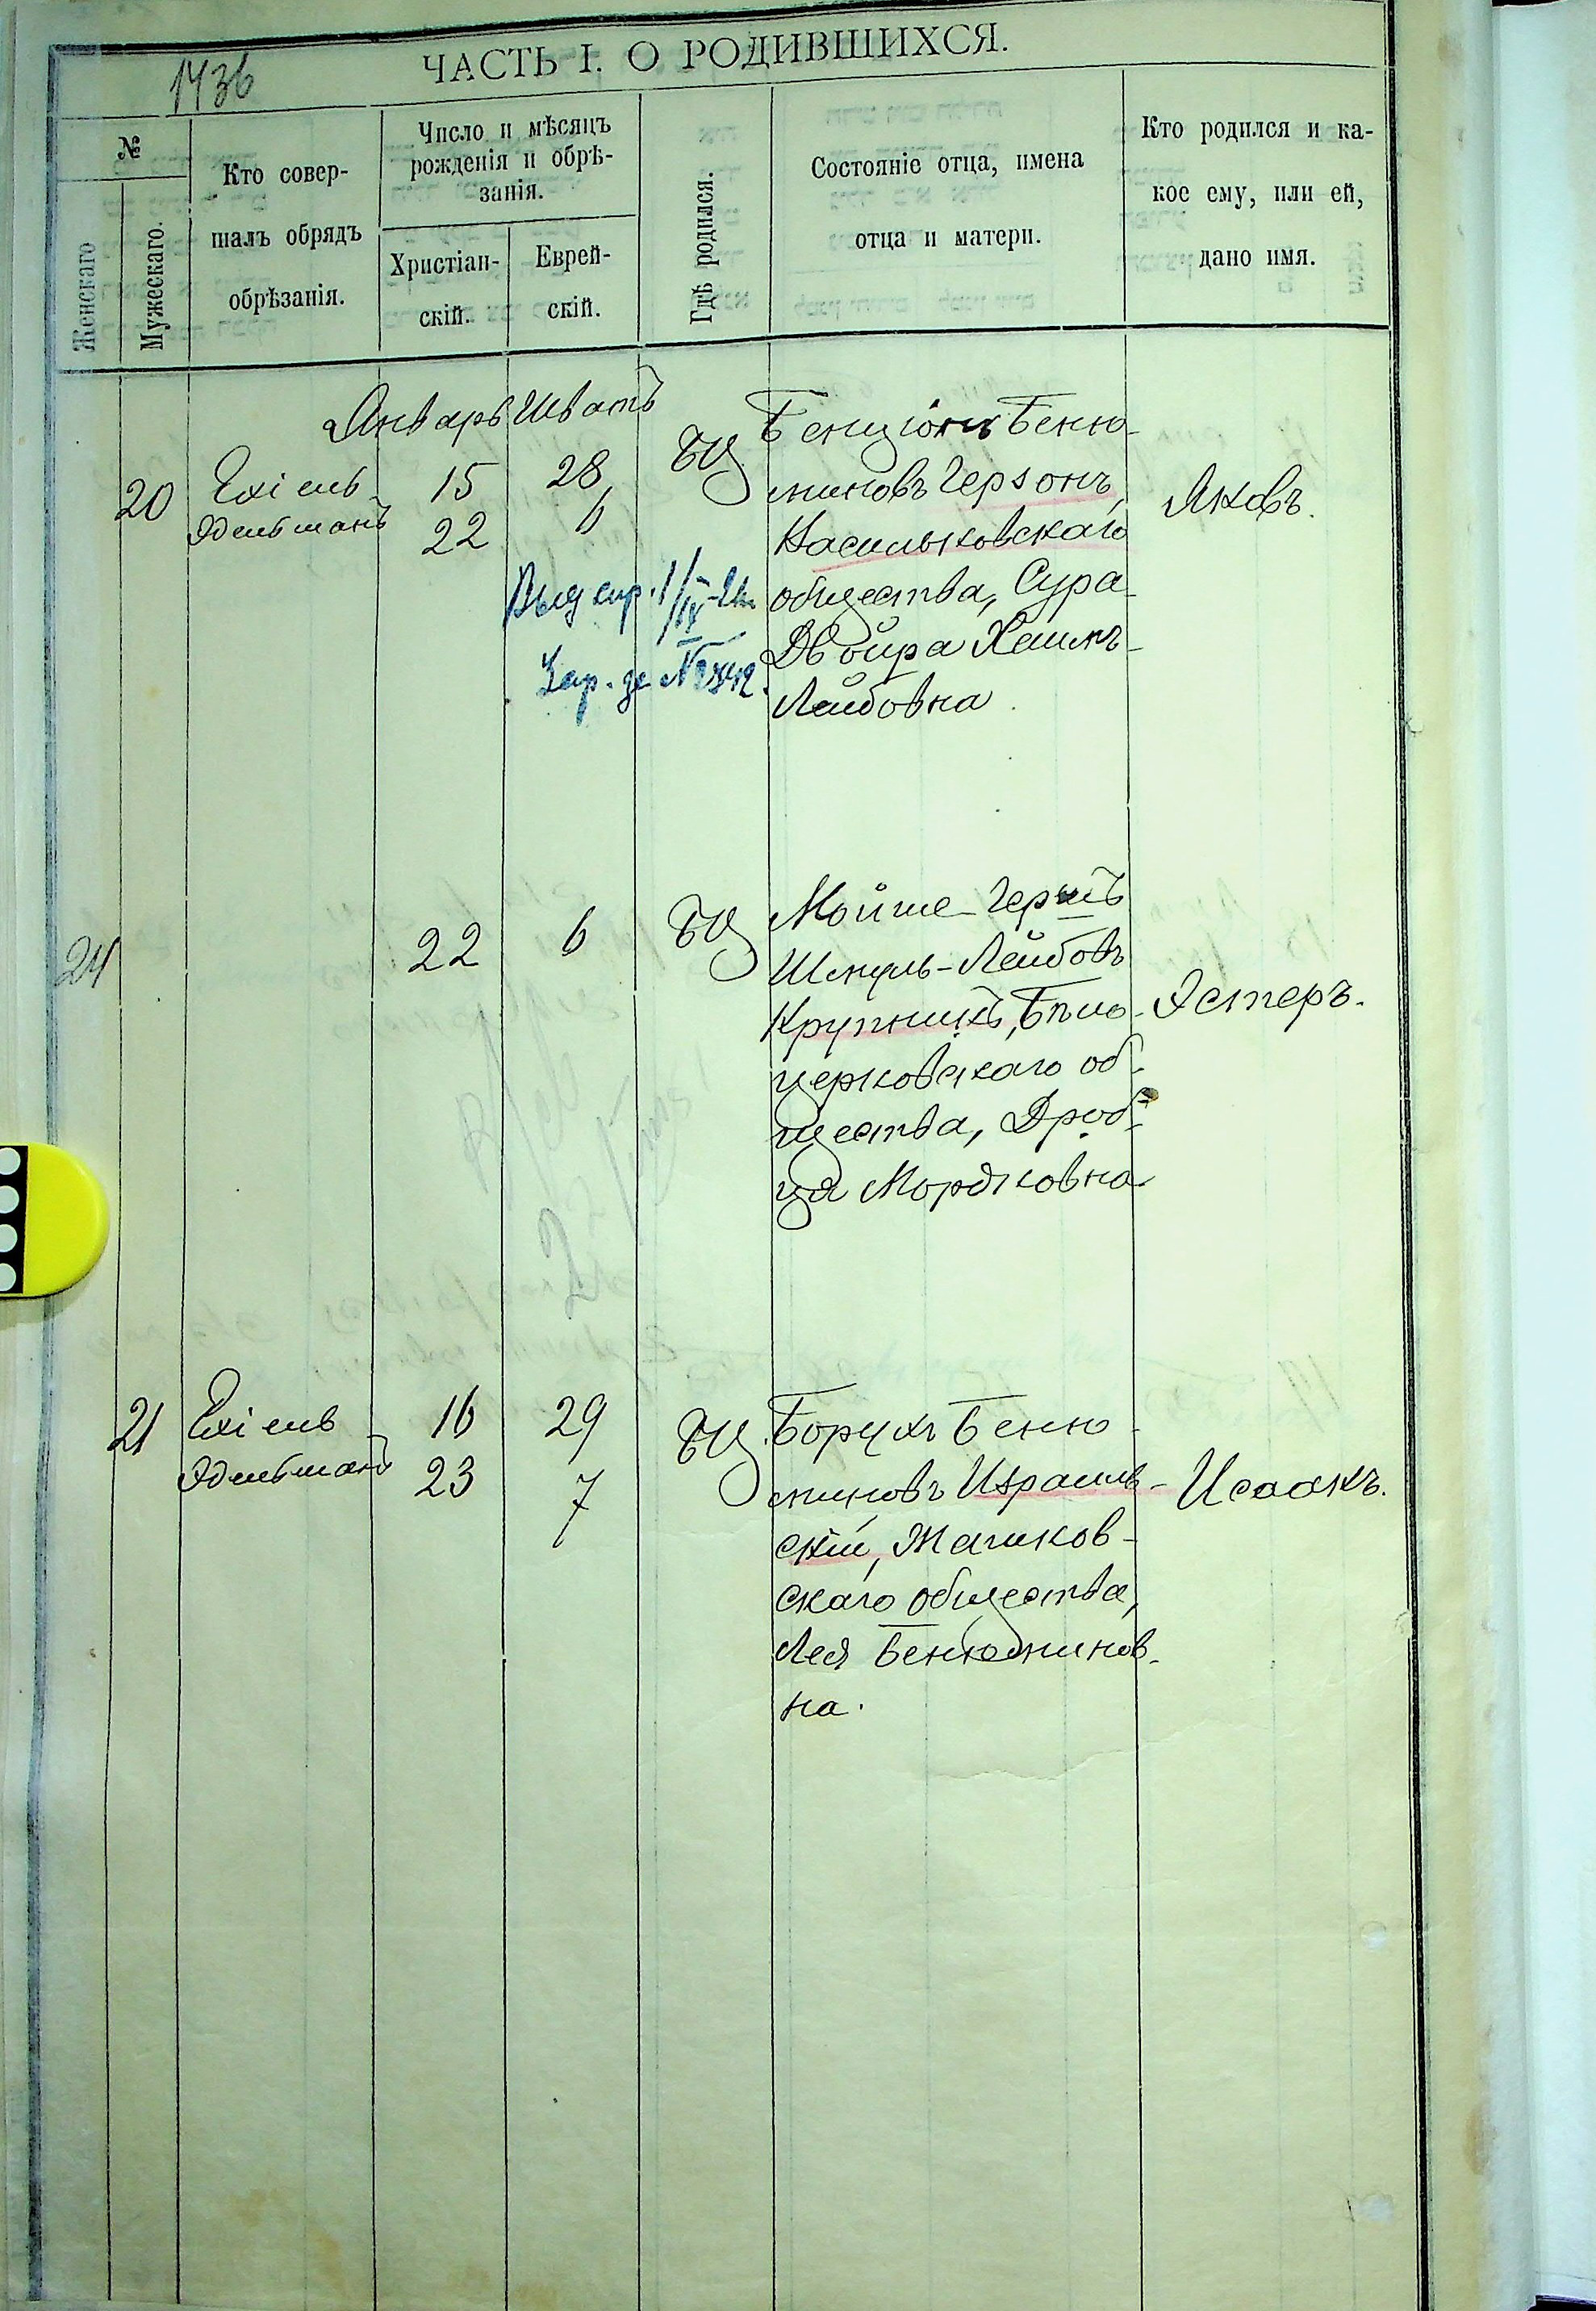 1436
ЧАСТЬ I. О РОДИВШИХСЯ.
№
Женскаго
Мужескаго.
Кто совер-
шалъ обрядъ
обрѣзанія.
Число и мѣсяцъ
рожденія и обрѣ-
занія.
Христіан-
скій.
Еврей-
скій.
Гдѣ родился.
Состояніе отца, имена
отца и матери.
Кто родился и ка-
кое ему, или ей,
дано имя.
Январь Шватъ
20
Ехіель
Эдельманъ
15
22
28
6
БЦ
Бенціонъ Беню-
миновъ Герзонъ,
Васильковскаго
общества, Сура-
Двойра Хаимъ-
Лейбовна
Яковъ.
Выд. спр. 1/IV
Зар. за №
24
22
6
БЦ
Мойше-Гершъ
Шмуль-Лейбовъ
Крупникъ, Бѣло-
церковскаго об-
щества, Дроб-
ца Мордковна
Эстеръ.
21
Ехіель
Эдельманъ
16
23
29
7
БЦ.
Борухъ Беню-
миновъ Израиль-
скій, Жашков-
скаго общества,
Лея Бенюминов-
на.
Исаакъ.